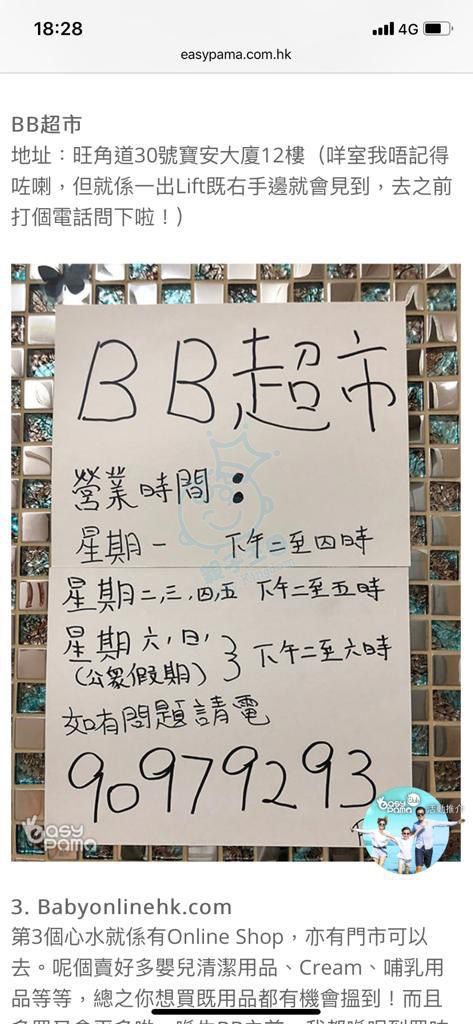 18:28
4G
easypama.com.hk
BB超市
地址：旺角道30號寶安大廈12樓（咩室我唔記得
咗喇，但就係一出Lift既右手邊就會見到，去之前
打個電話問下啦！）
BB超市
營業時間：
星期一 下午二至四時
星期二,三,四,五 下午二至五時
星期六,日,
(公眾假期) } 下午二至六時
如有問題請電
90979293
easy
pama
easy
pama
活動推介
3. Babyonlinehk.com
第3個心水就係有Online Shop，亦有門市可以
去。呢個賣好多嬰兒清潔用品、Cream、哺乳用
品等等，總之你想買既用品都有機會搵到！而且